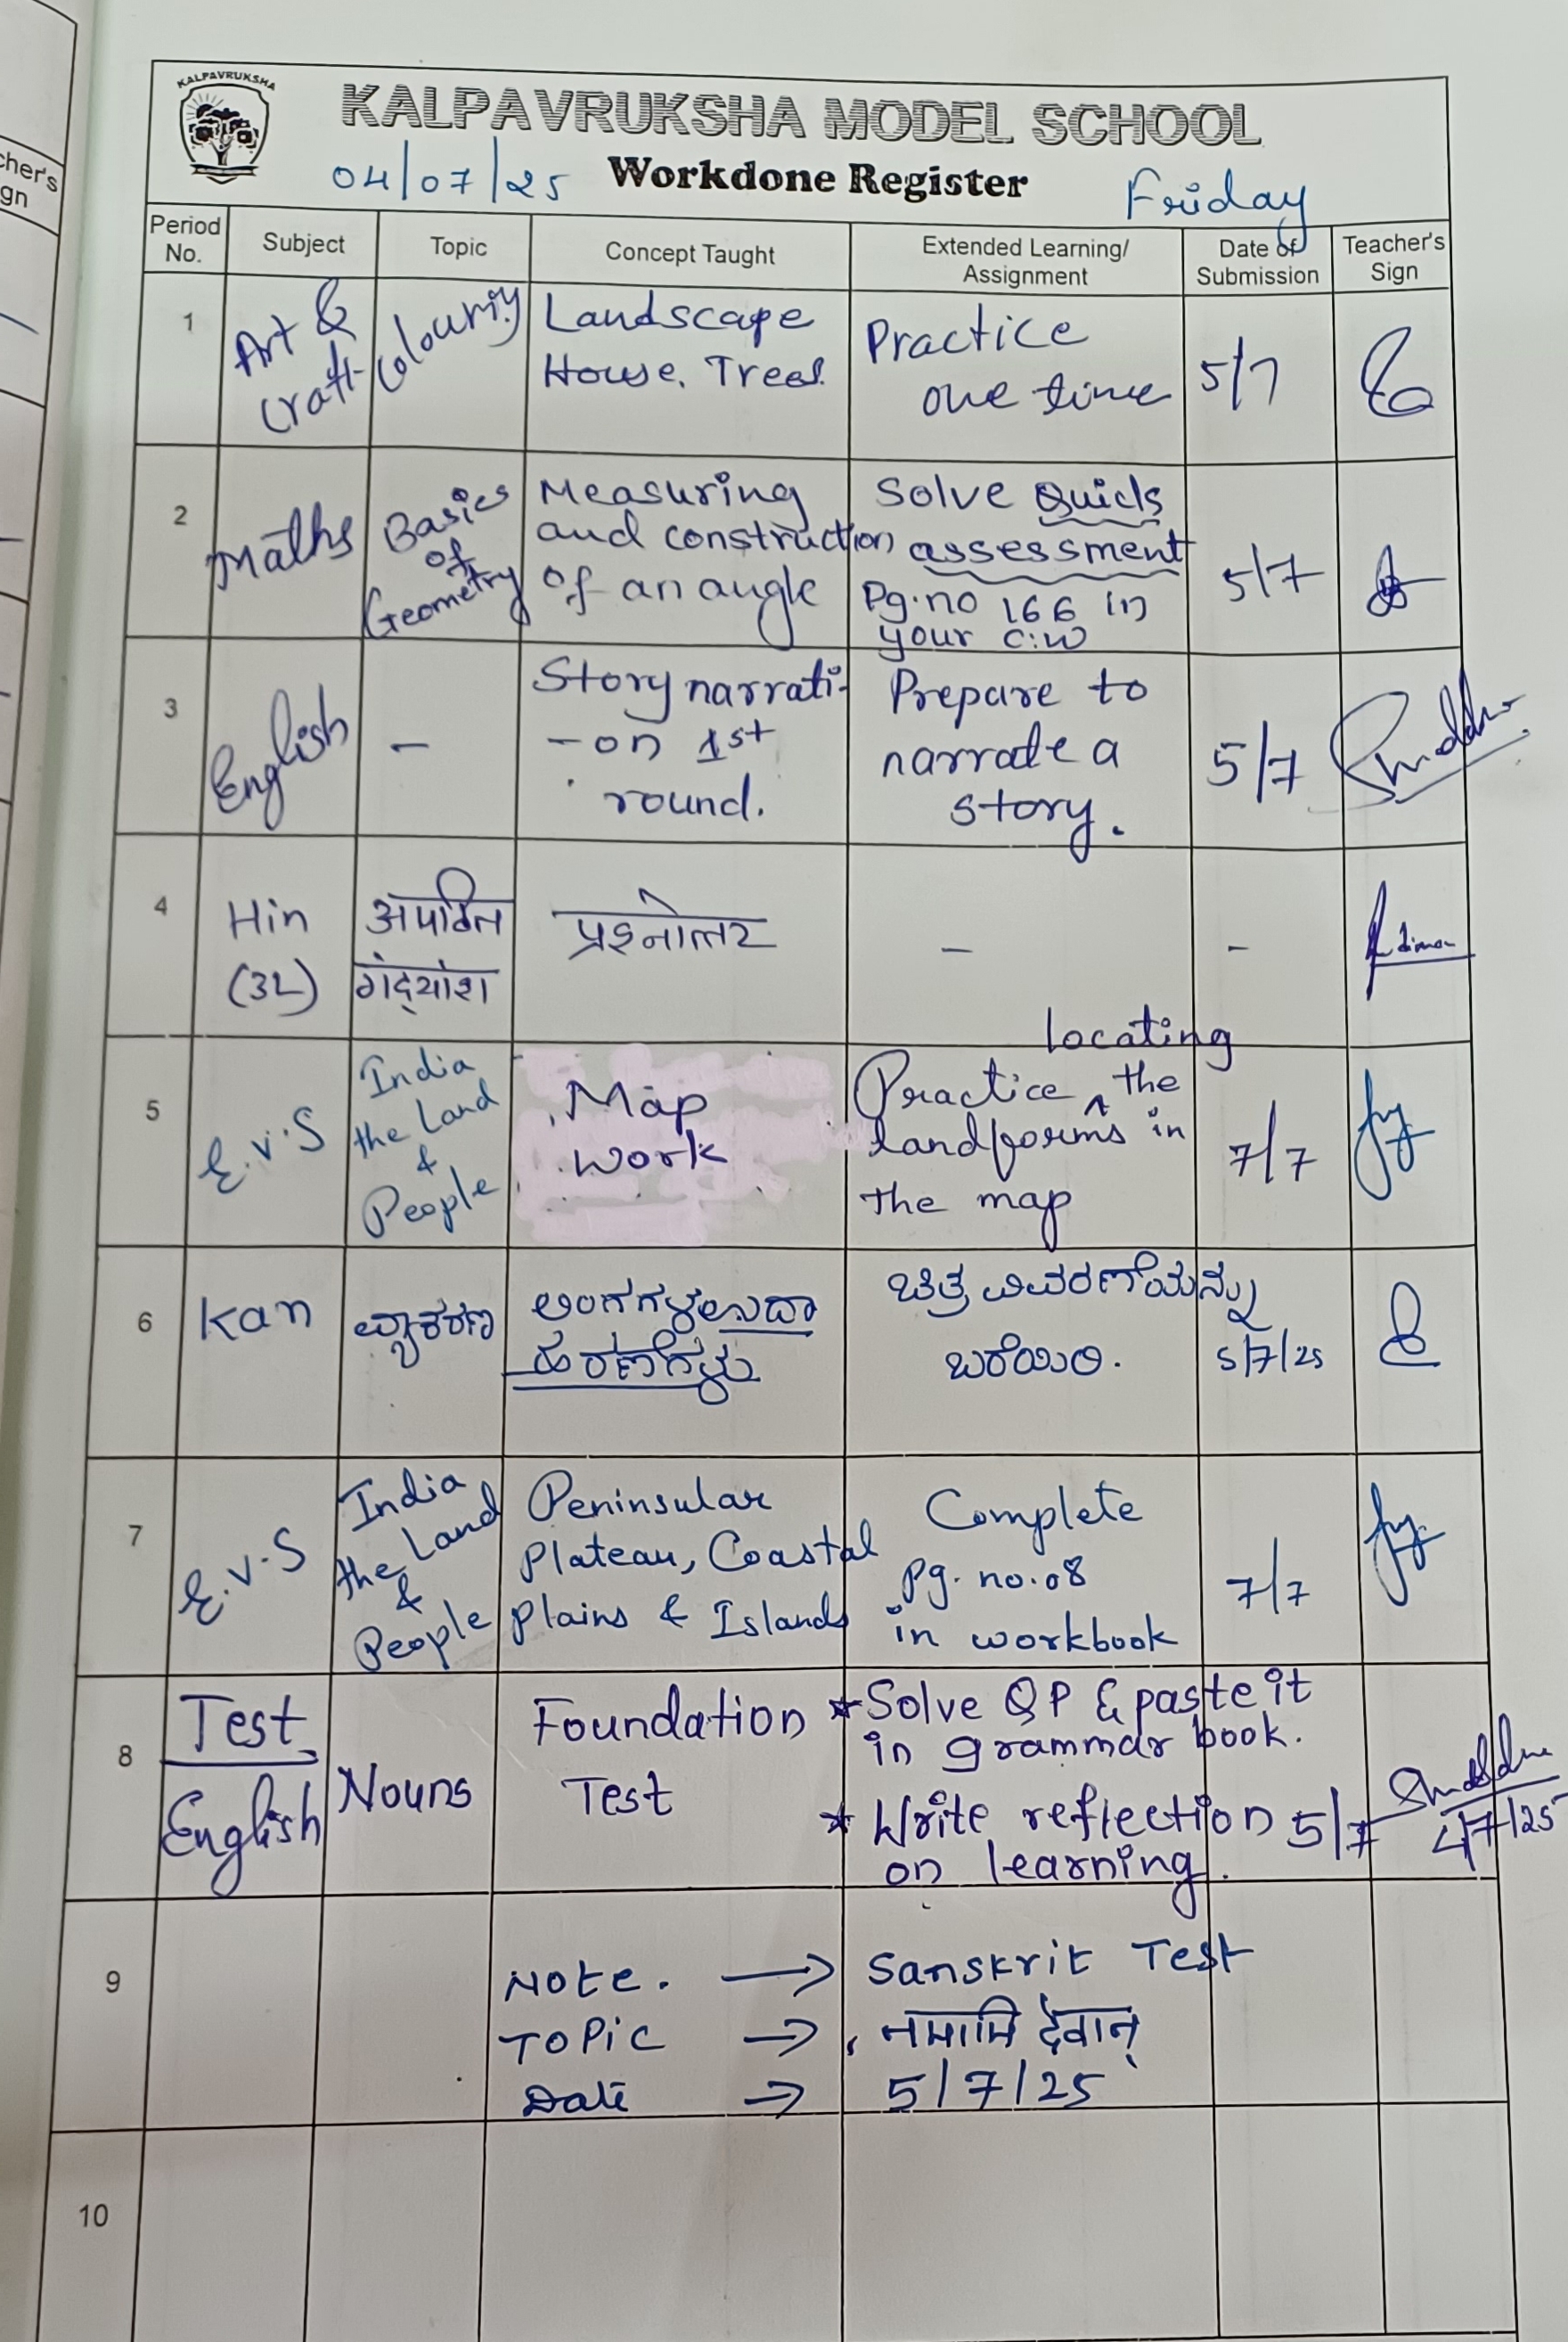 cher's
gn
KALPAVRUKSHA
KALPAVRUKSHA MODEL SCHOOL
04/07/25 Workdone Register Friday
Period No. Subject Topic Concept Taught Extended Learning/ Assignment Date of Submission Teacher's Sign
1 Art & Craft Colouring Landscape House, Trees. Practice one time 5/7
2 Maths Basics of Geometry Measuring and construction of an angle Solve Quick assessment Pg.no 166 in your C.W 5/7
3 English - Story narrati- -on 1st round. Prepare to narrate a story. 5/7
4 Hin (3L) अपठित गद्यांश प्रश्नोत्तर - -
5 E.V.S India the Land & People Map work Practice locating the landforms in the map 7/7
6 Kan ವ್ಯಾಕರಣ ಅಂಗಗಳಉದಾ ಹರಣೆಗಳು ಚಿತ್ರ ವಿವರಣೆಯನ್ನು ಬರೆಯಿರಿ. 5/7/25
7 E.V.S India the Land & People Peninsular Plateau, Coastal Plains & Islands Complete Pg. no.08 in workbook 7/7
8 Test English Nouns Foundation Test * Solve QP & paste it in grammar book. * Write reflection on learning. 5/7 4/7/25
9 Note. → Sanskrit Test
Topic → नमामि देवान्
Date → 5/7/25
10